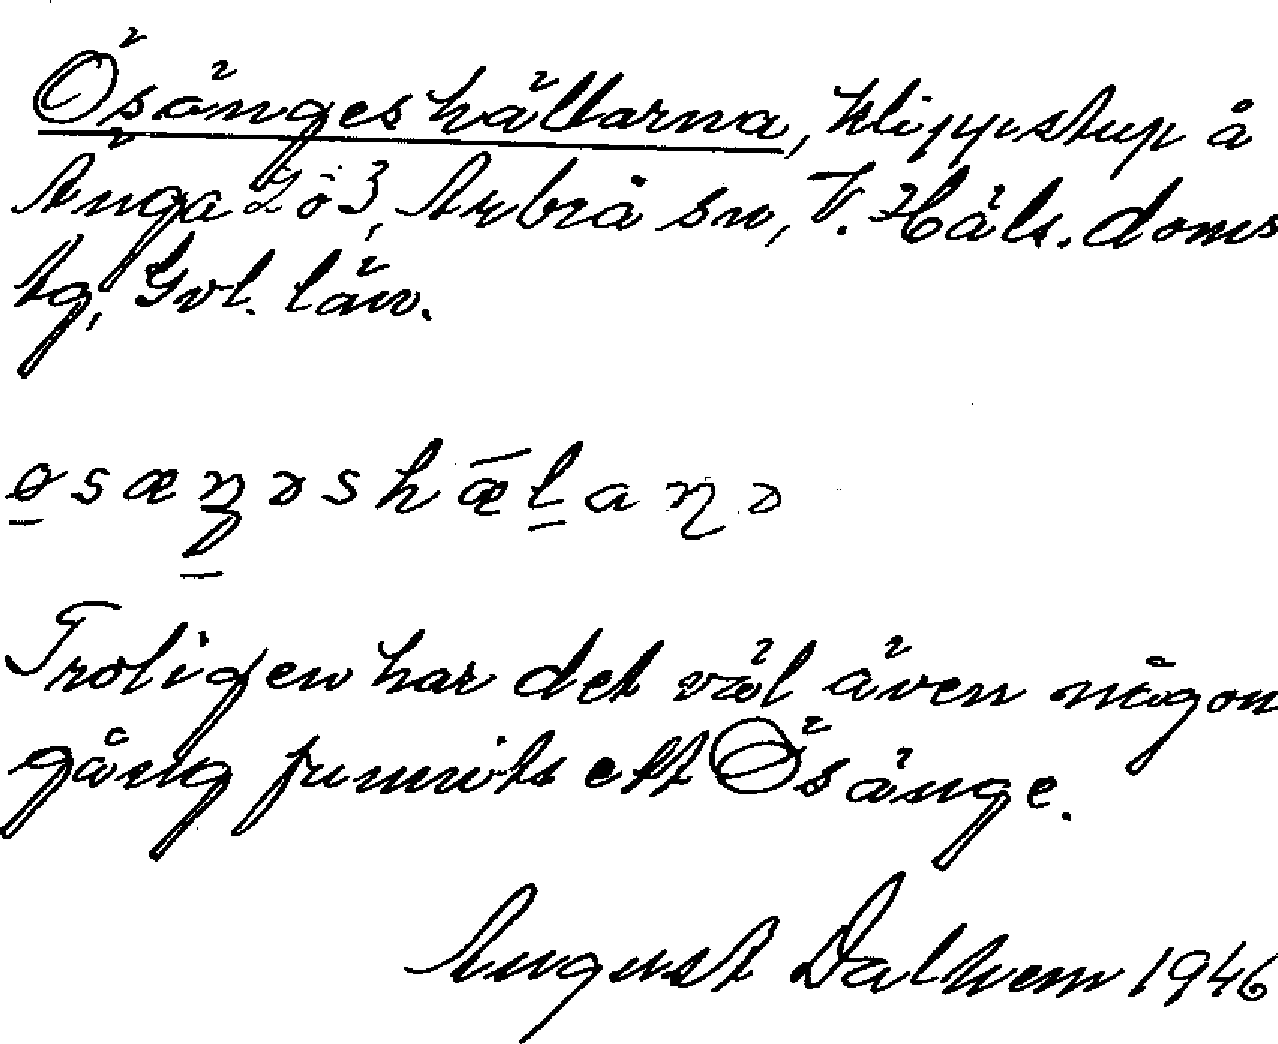 Ösängeshällarna, klippstup å
Änga 2ö3, Arbrå sn, V. Häls. doms
tg, Gvl. län.
ɵsæŋəshǣlaɳə
Troligen har det väl även någon
gång funnits ett Ösänge.
August Dalhem 1946